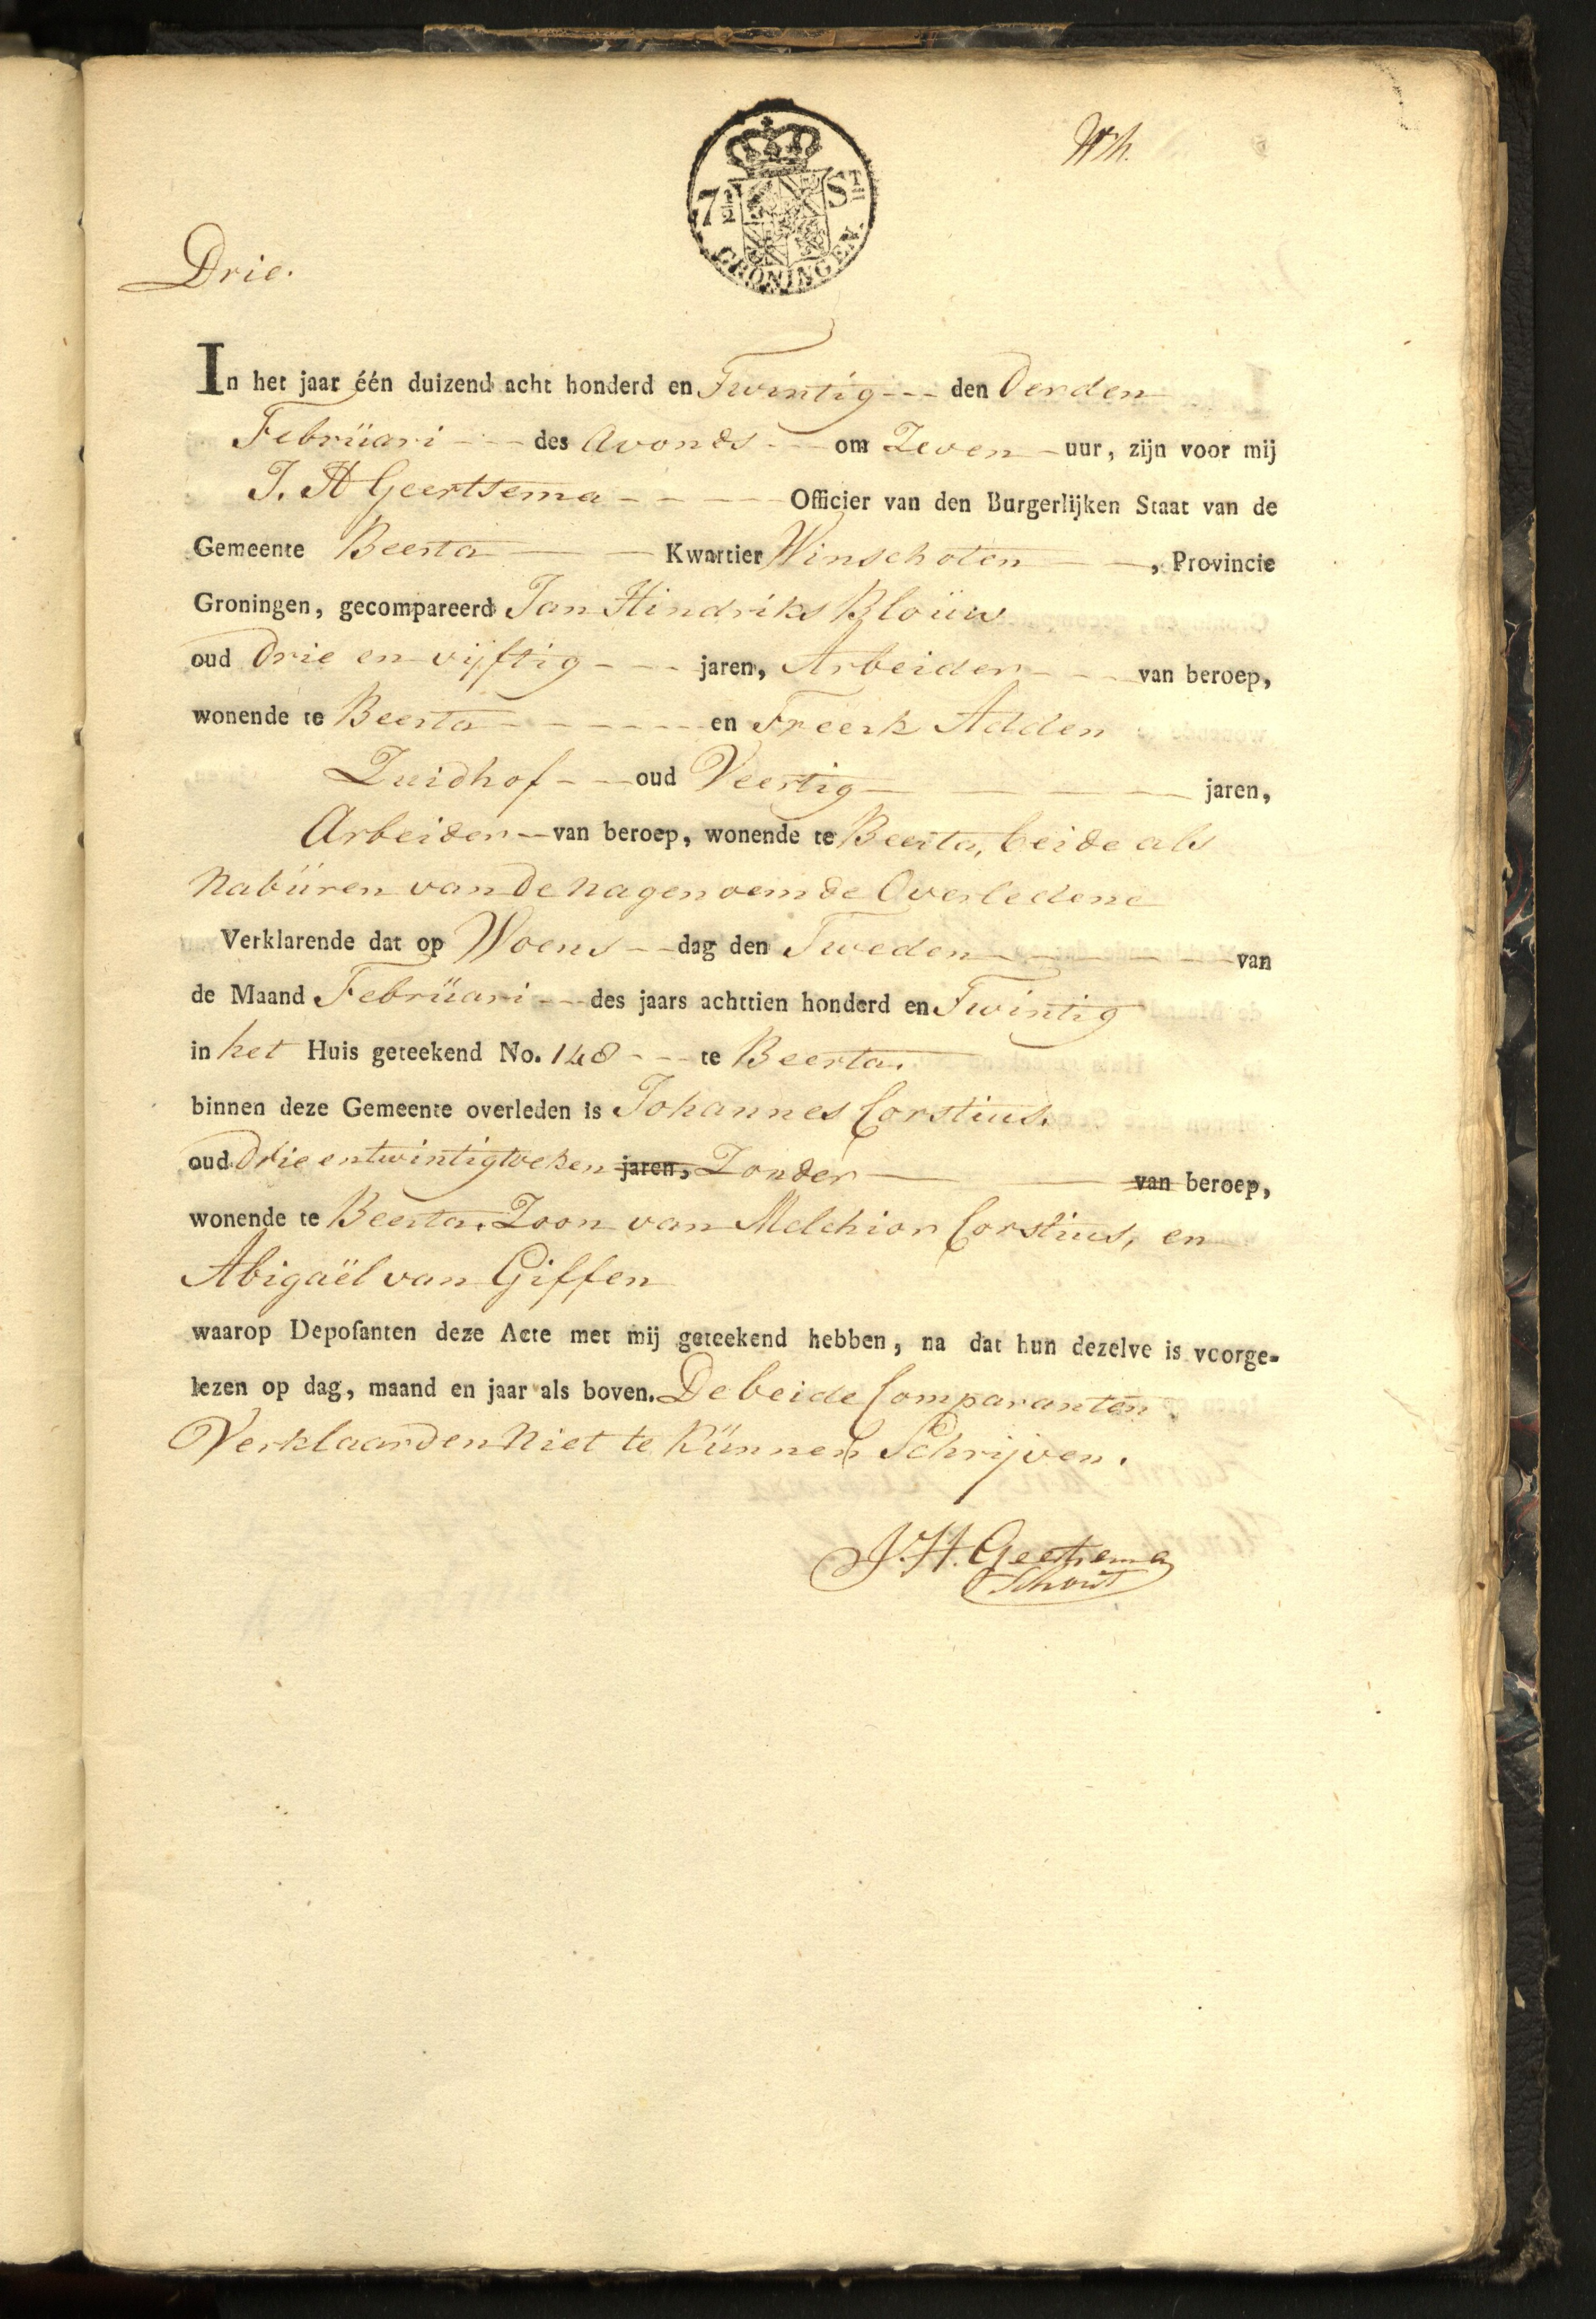 Wh.
7½ St
GRONINGEN.
Drie.
In het jaar één duizend acht honderd en Twintig --- den Derden
Febrüari --- des Avonds --- om Zeven - uur, zijn voor mij
J. H Geertsema - - - - Officier van den Burgerlijken Staat van de
Gemeente Beerta — — Kwartier Winschoten — —, Provincie
Groningen, gecompareerd Jan Hindriks Bloüw
oud Drie en vijftig - - - jaren, Arbeider - - - van beroep,
wonende te Beerta - - - - - - en Freerk Adden
Zuidhof - - oud Veertig — — — — — jaren,
Arbeider — van beroep, wonende te Beerta, beide als
Nabüren van De nagenoemde Overledene
Verklarende dat op Woens - - dag den Tweden - - - - van
de Maand Febrüari - - des jaars achttien honderd en Twintig
in het Huis geteekend No. 148 - - - te Beerta.
binnen deze Gemeente overleden is Johannes Corstius.
oud Drie entwintig weken jaren, Zonder — — van beroep,
wonende te Beerta. Zoon van Melchior Corstius, en
Abigaël van Giffen
waarop Deposanten deze Acte met mij geteekend hebben, na dat hun dezelve is voorge-
lezen op dag, maand en jaar als boven. De beide Comparanten
Verklaarden Niet te Künnen Schrijven.
J. H. Geertsema
Schout